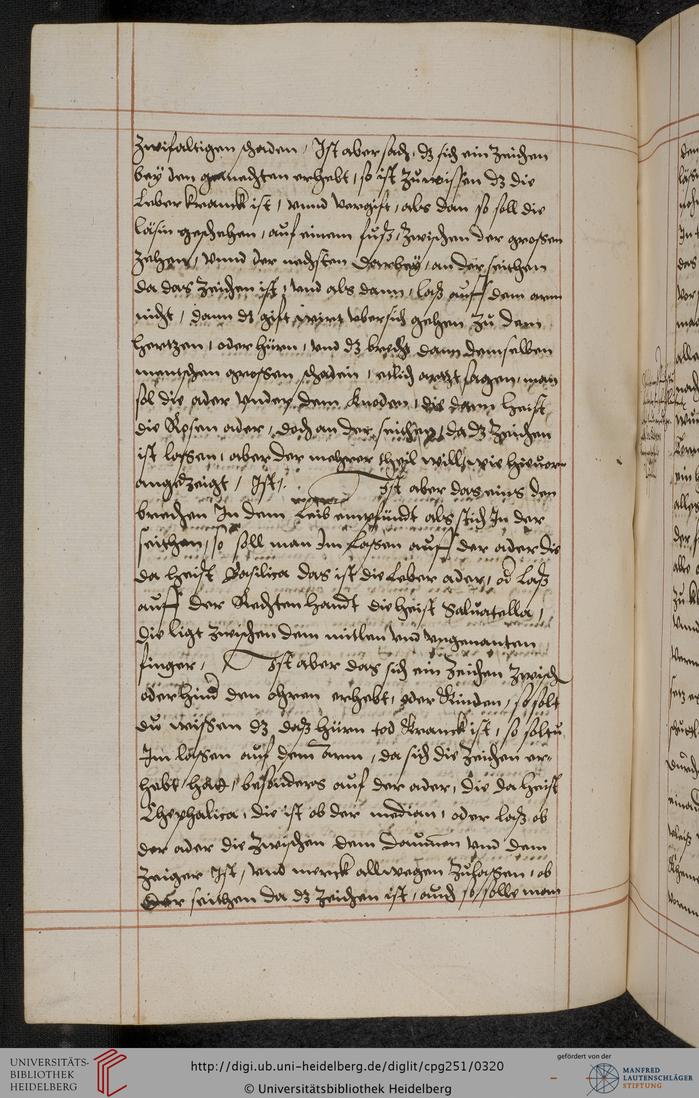 zwifaltigen schaden, Ist aber sach, dz sich ein zeichen
bey den gemechten erhebt, so ist zuwissen dz die
Leber kranck ist, vnnd vergift, als dan so soll die
läsin geschehen, auf einem fuß, zwischen der grossen
zehen, vnnd der nechsten darbey, an der seithen
da das zeichen ist, vnd als dann, laß auff dem arm
nicht, dann dz gift wirt vbersich gehen zu dem
hertzen, oder hürn, vnd dz brecht dann demselben
menschen grossen schaden, etlich artzt sagen, man
sol die ader vnder dem knoden, die dann heist
die Rosen ader, doch an der seithen, da dz zeichen
ist lassen, aber der mehrer theil will, wie hieuor
angezeigt, Ist, Ist aber das eins den
brechen In dem Leib empfündt als stich In der
seithen, so soll man Im Lassen auff der ader die
da heist Basilica das ist die Leber ader, od Laß
auff der Rechten handt die heist Saluatella,
die ligt zwischen dem mitlen vnd vngenanten
finger, Ist aber das sich ein zeichen zwisch
oder hind den ohren erhebt, oder Rinden, so solt
du wissen dz daß hürn tod kranck ist, so soltu
Im lassen auf dem Arm, da sich die zeichen er-
hebt hatt, besonders auf der ader, die da heist
Chephalica, die ist ob der median, oder laß ob
der ader die zwischen dem Daumen vnd dem
zeiger Ist, vnd merck allwegen zulassen, ob
der seithen da dz zeichen ist, auch so solle man
UNIVERSITÄTS-
BIBLIOTHEK
HEIDELBERG
http://digi.ub.uni-heidelberg.de/diglit/cpg251/0320
© Universitätsbibliothek Heidelberg
gefördert von der
MANFRED
LAUTENSCHLÄGER
STIFTUNG